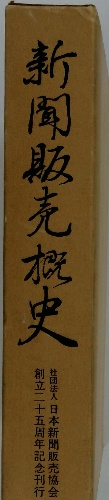 新聞販売概史
社団法人 日本新聞販売協会
創立二十五周年記念刊行